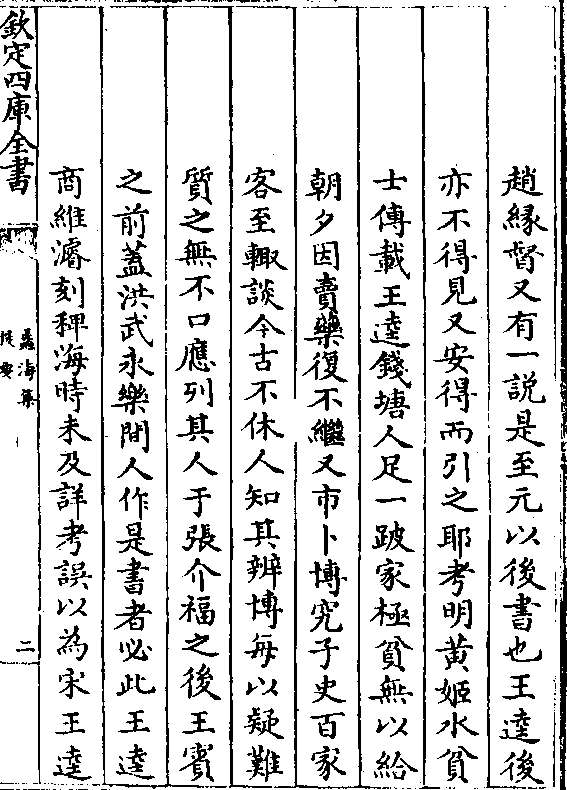 趙縁督又有一説是至元以後書也王逵後
亦不得見又安得而引之耶考明黄姬水貧
士傳載王逵錢塘人足一跛家極貧無以給
朝夕因賣藥復不繼又市卜博究子史百家
客至輙談今古不休人知其辨博每以疑難
質之無不口應列其人于張介福之後王賓
之前葢洪武永樂間人作是書者必此王逵
商維濬刻稗海時未及詳考誤以為宋王逵
欽定四庫全書
蠡海集
提要
二